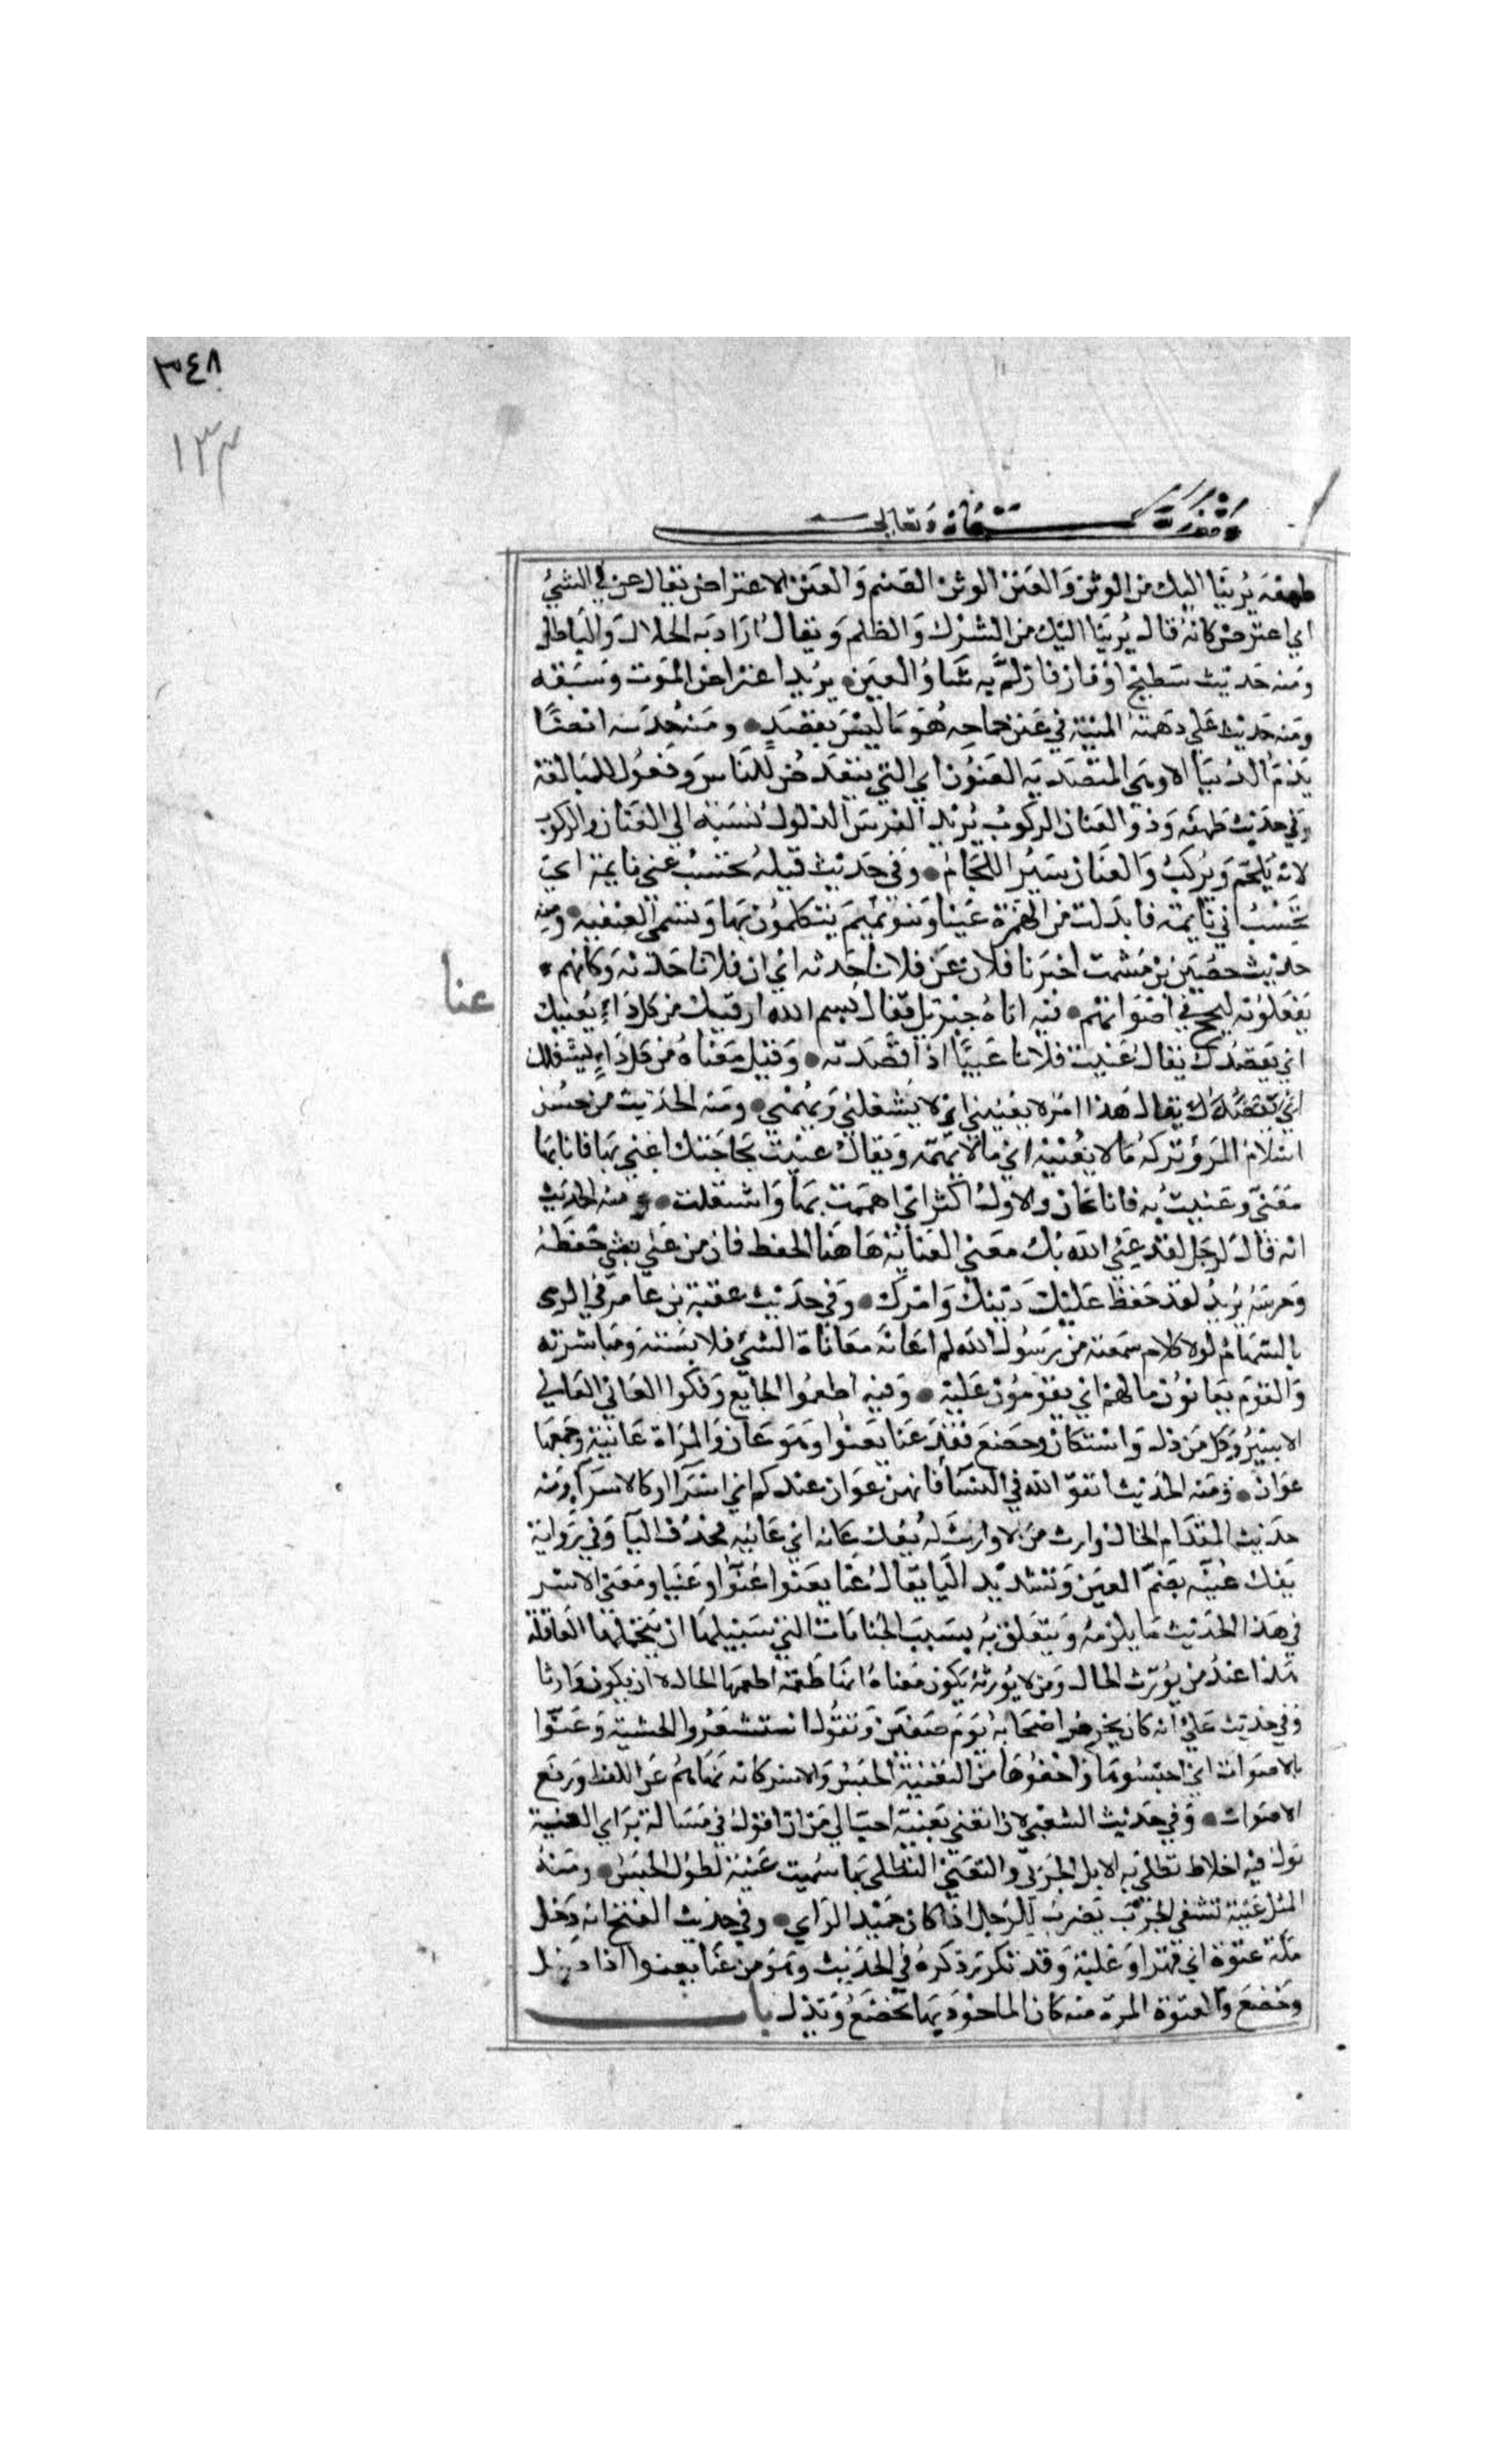 ٣٤٨
١٣٣
وقف لله سبحانه وتعالى
طهفه برينا اليك من الوثن والعنن الوثن الصنم والعنن الاعتراض يقال عن لي الشيء
اي اعترض كانه قال برينا اليك من الشرك والظلم ويقال اراد به الخلاف والباطل
ومنه حديث سطيح او فاز فازلم به شأو العنن يريد اعتراض الموت وسبقه
ومنه حديث علي دهمته المنية في عنن جماحه هو ما ليس بقصد ومنه حديثه ايضا
يذم الدنيا الا وهي المتصدية العنون اي التي تتعرض للناس وفعول للمبالغة
وفي حديث طهفه وذو العنان الركوب يريد الفرس الذلول نسبه الي العنان والركوب
لانه يلجم ويركب والعنان سير اللجام وفي حديث قيله تحسب عني نايمة اي
تحسب اني نايمة فابدلت من الهمزة عينا وبنو تميم يتكلمون بها وتسمى العنعنه ومنه
حديث حصين بن مشمت اخبرنا فلان عن فلانا حدثه اي ان فلانا حدثه وكانهم
عنا
يفعلونه لبحح في اصواتهم فيه اتاه جبريل فقال بسم الله ارقيك من كل داء يعنيك
اي يقصدك يقال عنيت فلانا عنيا اذا قصدته وقيل معناه من كل داء يشغلك
يقال هذا امر لا يعنيني اي لا يشغلني ويهمني ومنه الحديث من حسن
اسلام المرء تركه ما لا يعنيه اي ما لا يهمه ويقال عنيت بحاجتك اعني بها فانا بها
معني وعنيت به فانا عان والاول اكثر اي اهممت بها واشتغلت ومنه الحديث
انه قال لرجل لقد عني الله بك معني العناية هاهنا الحفظ فان من عني بشي حفظه
وحرسه يريد لقد حفظ عليك دينك وامرك وفي حديث عقبة بن عامر في الرمى
بالسهام لولا كلام سمعته من رسول الله لم اعانه معاناة الشيء ملابسته ومباشرته
والقوم يعانون مالهم اي يقومون عليه وفيه اطعموا الجايع وفكوا العاني العاني
الاسير وكل من ذل واستكان وخضع فقد عنا يعنوا وهو عان والمراة عانية وجمعها
عوان ومنه الحديث اتقوا الله في النسأ فانهن عوان عندكم اي اسرا او كالاسرا ومنه
حديث المقدام الخال وارث من لا وارث له يفك عانه اي عانيه فحذف اليا وفي رواية
يفك عنيه بضم العين وتشديد اليا يقال عنا يعنوا عنوا وعنيا ومعنى الاسر
في هذا الحديث ما يلزمه ويتعلق به بسبب الجنايات التي سبيلها ان يتحملها العاقلة
هذا عند من يورث الخال ومن لا يورثه يكون معناه انها طعمة اطعمها الخال لا ان يكون وارثا
وفي حديث علي انه كان يحرض اصحابه يوم صفين ويقول استشعروا الخشية وعنوا
بالاصوات اي احبسوها واخفوها من التعنية الحبس والاسر كانه نهاهم عن اللغط ورفع
الاصوات وفي حديث الشعبي لان اتعني بعنية احب الي من ان اقول في مسالة براي العنية
بول فيه اخلاط تطلى به الابل الجربى والتعني التطلى بها سميت عنية لطول الحبس ومنه
المثل عنية تشفي الجرب يضرب للرجل اذا كان جيد الراي وفي حديث الفتح انه دخل
مكة عنوة اي قهرا وغلبة وقد تكرر ذكره في الحديث وهو من عنا يعنوا اذا ذل
وخضع والعنوة المرة منه كان الماخوذ بها تخضع وتذل باب